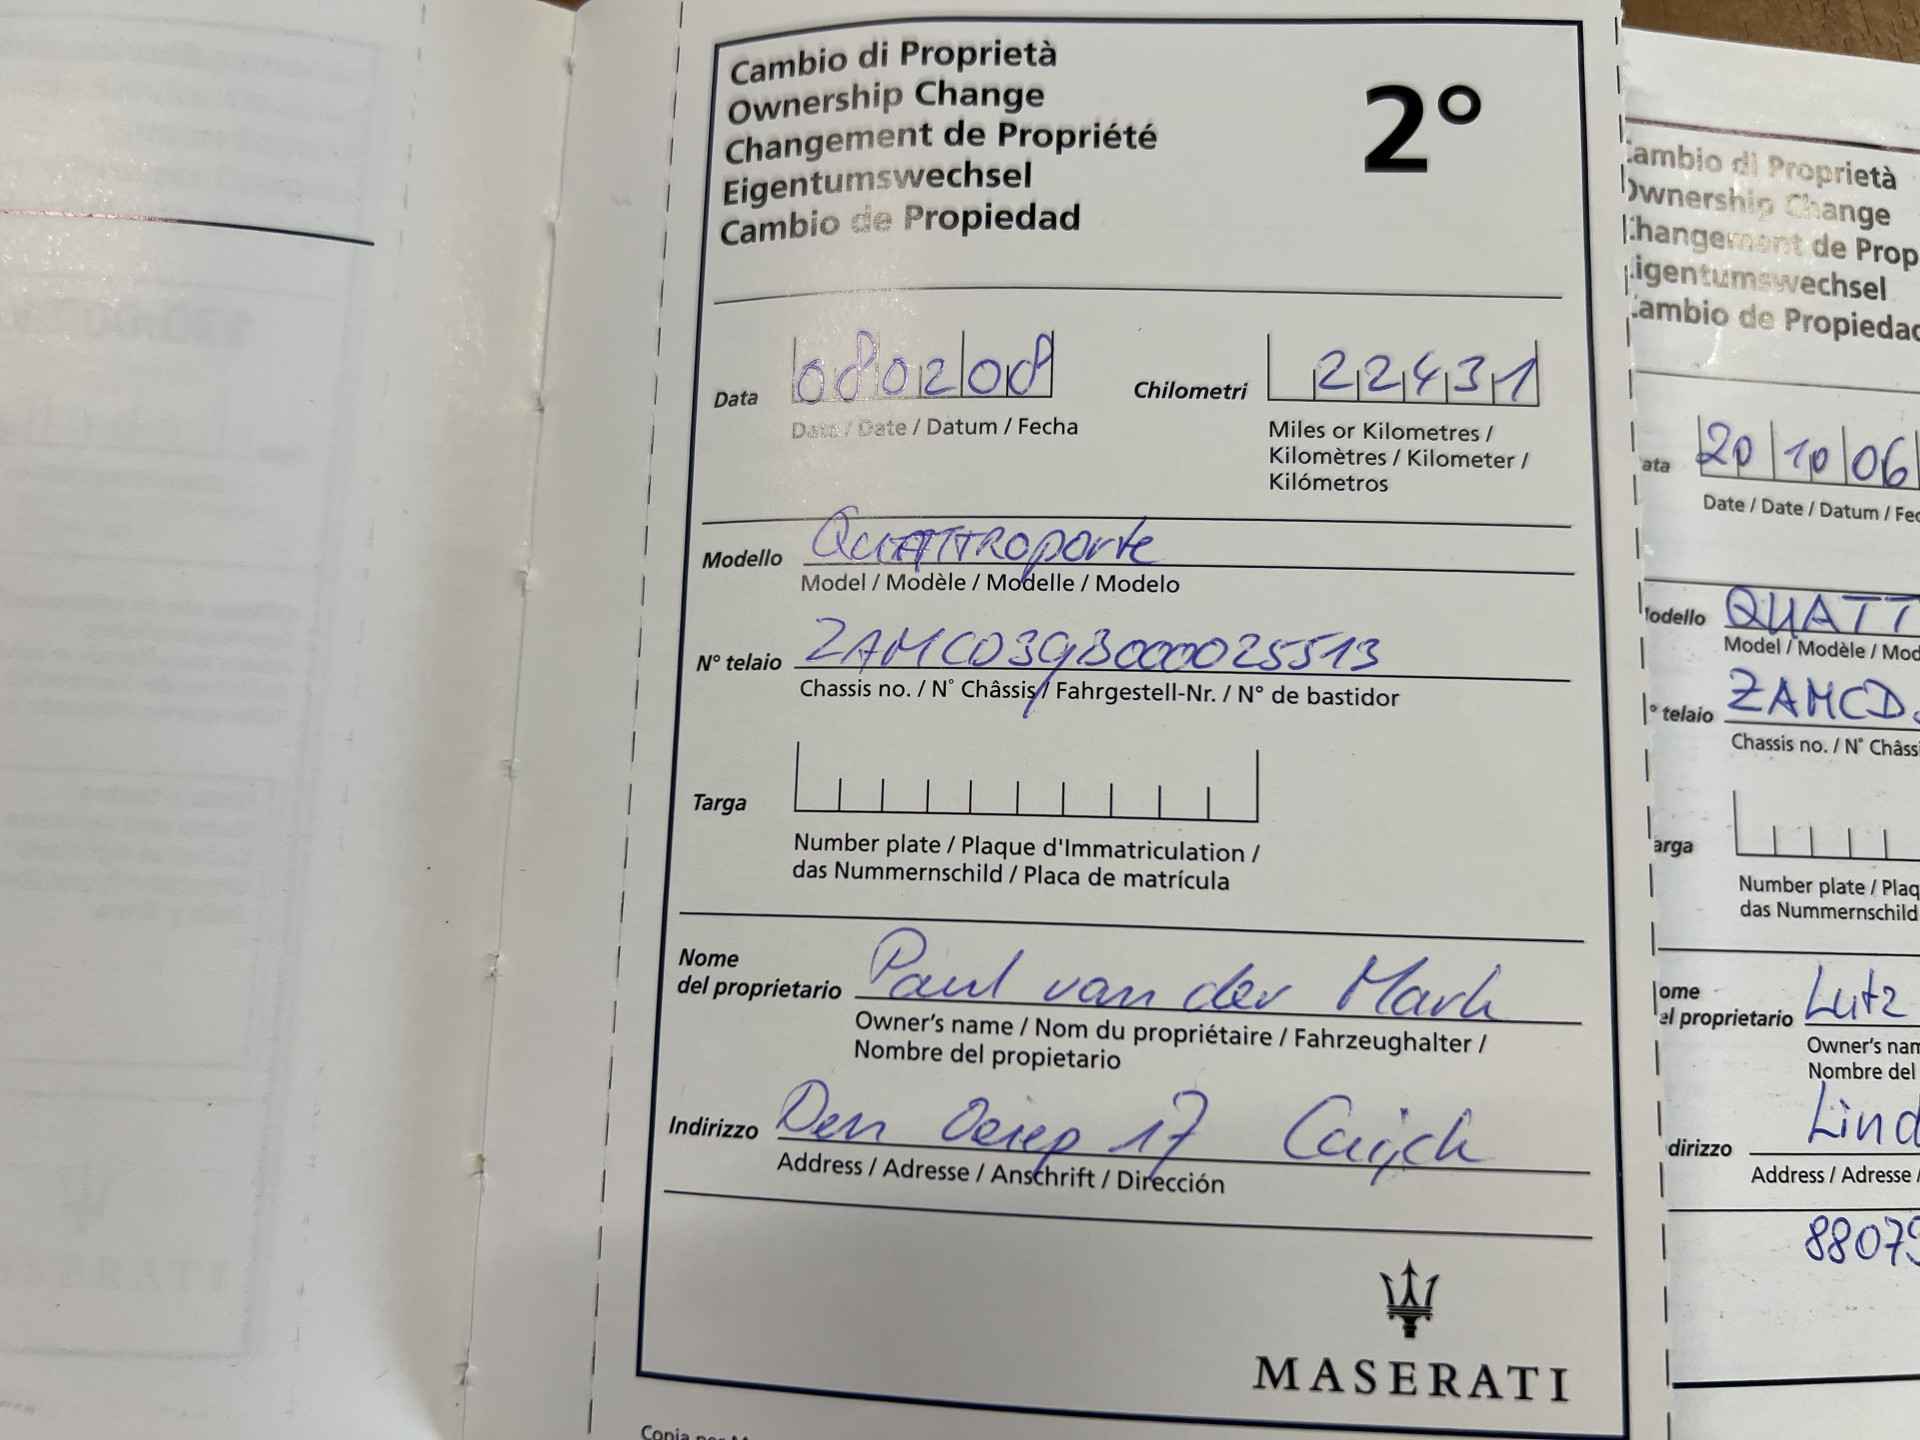 Cambio di Proprietà
Ownership Change
Changement de Propriété
Eigentumswechsel
Cambio de Propiedad
2°
Data 080208
Date / Date / Datum / Fecha
Chilometri 22431
Miles or Kilometres /
Kilomètres / Kilometer /
Kilómetros
Modello Quattroporte
Model / Modèle / Modelle / Modelo
N° telaio ZAMCD39B000025513
Chassis no. / N° Châssis / Fahrgestell-Nr. / N° de bastidor
Targa
Number plate / Plaque d'Immatriculation /
das Nummernschild / Placa de matrícula
Nome
del proprietario Paul van der Mark
Owner's name / Nom du propriétaire / Fahrzeughalter /
Nombre del propietario
Indirizzo Den 17 Cuijck
Address / Adresse / Anschrift / Dirección
MASERATI
Cambio di Proprietà
Ownership Change
Changement de Prop
Eigentumswechsel
Cambio de Propiedad
ata 20 10 06
Date / Date / Datum / Fec
odello QUATT
Model / Modèle / Mod
° telaio ZAMCD
Chassis no. / N° Châss
arga
Number plate / Plaq
das Nummernschild
ome
el proprietario Lutz
Owner's nam
Nombre del
dirizzo Lind
Address / Adresse /
8807